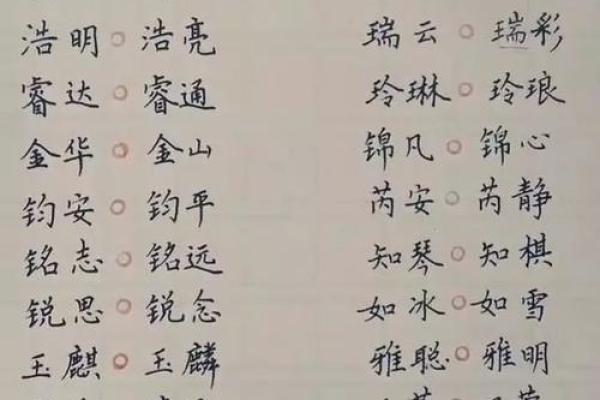 浩明○浩亮 瑞云○瑞彩
睿达○睿通 玲琳○玲琅
金华○金山 锦凡○锦心
钧安○钧平 芮安○芮静
铭志○铭远 知琴○知棋
锐思○锐念 如冰○如雪
玉麒○玉麟 雅聪○雅明